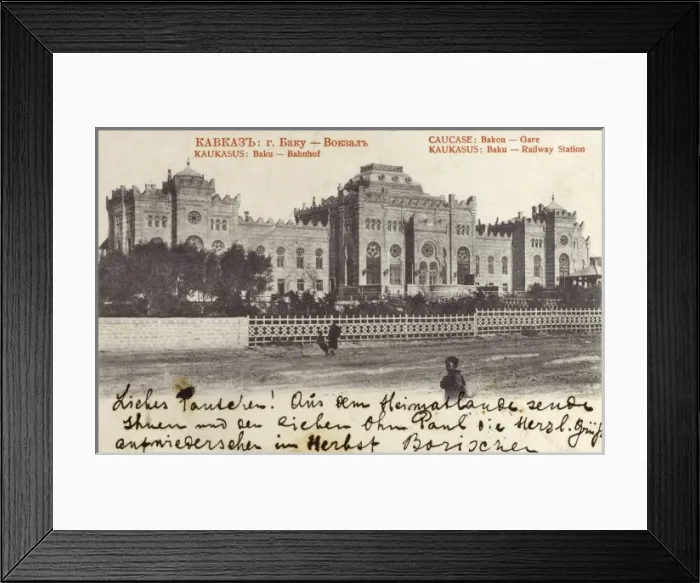 КАВКАЗЪ: г. Баку — Вокзалъ
KAUKASUS: Baku — Bahnhof
CAUCASE: Bakou — Gare
KAUKASUS: Baku — Railway Station
Liebes Tantchen! Aus dem Heimatlande sende
Ihnen und den lieben Ohm Paul die Herzl. Grüße
aufwiedersehen im Herbst